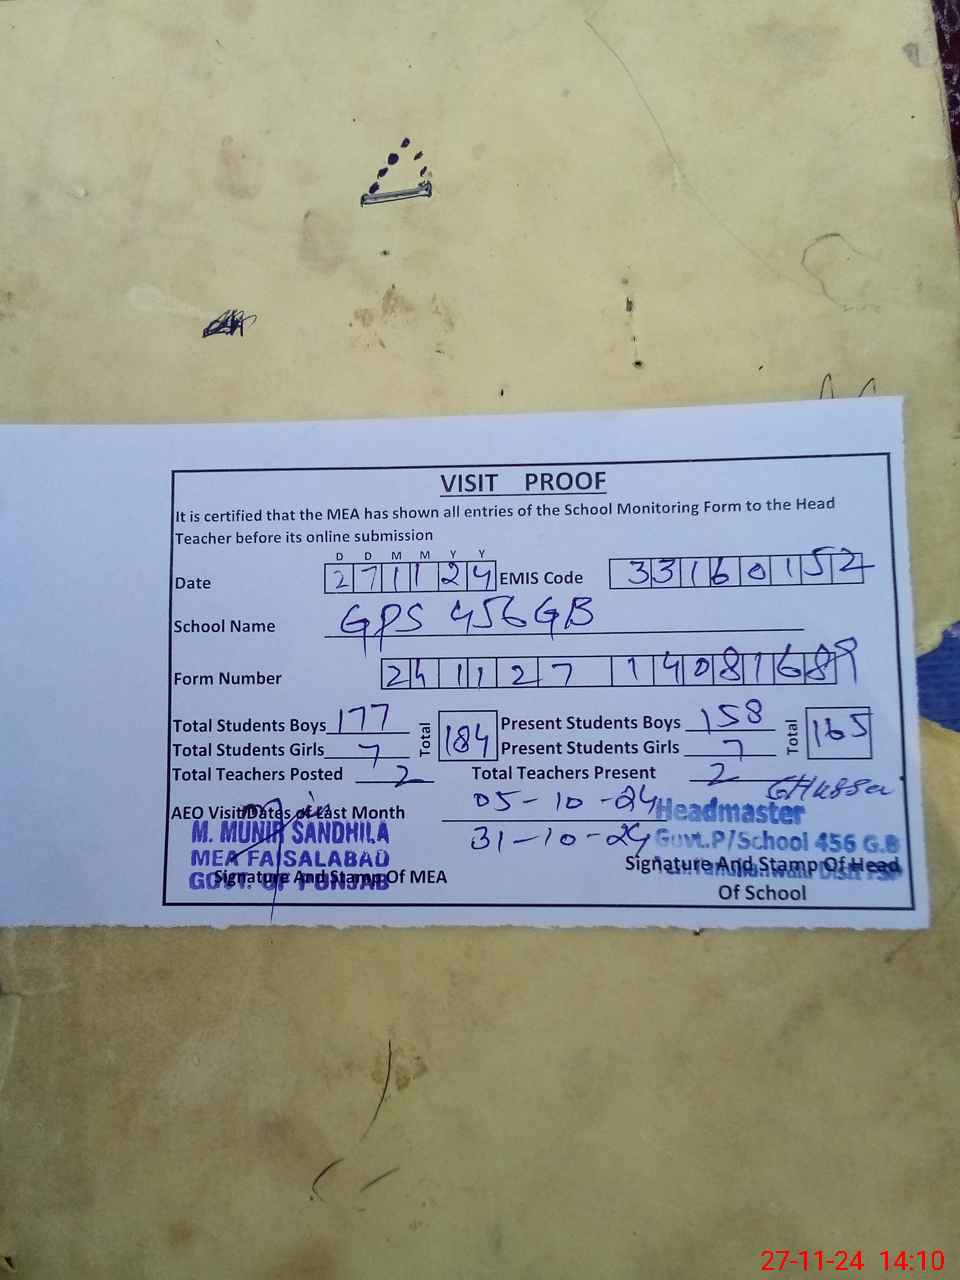 VISIT PROOF
It is certified that the MEA has shown all entries of the School Monitoring Form to the Head
Teacher before its online submission
D D M M Y Y
Date 271124 EMIS Code 33160152
School Name GPS 456 GB
Form Number 241127 14081689
Total Students Boys 177 Total 184 Present Students Boys 158 Total 165
Total Students Girls 7 Present Students Girls 7
Total Teachers Posted 2 Total Teachers Present 2
AEO Visit Dates of Last Month 05-10-24
31-10-24
M. MUNIR SANDHILA
MEA FAISALABAD
GOVT. OF PUNJAB
Signature And Stamp Of MEA
Headmaster
Govt.P/School 456 G.B
Signature And Stamp Of Head
Of School
27-11-24 14:10